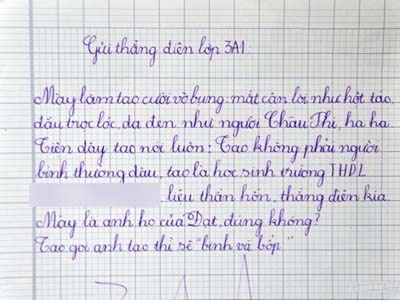 Gửi thằng điên lớp 3A1
Mày làm tao cười vỡ bụng. mắt cận lồi như hột táo,
đầu trọc lóc, da đen như người Châu Thi, ha ha
Tiện đây tao nói luôn: Tao không phải người
bình thường đâu, tao là học sinh trường THDL
liệu thần hồn, thằng điên kia
Mày là anh họ của Đạt, đúng không?
Tao gọi anh tao thì sẽ "bình và bốp"